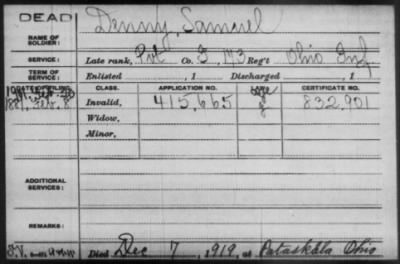 DEAD
NAME OF SOLDIER: Denny, Samuel
SERVICE: Late rank, Pvt Co. I, 143 Reg't Ohio Inf
TERM OF SERVICE: Enlisted , 1 Discharged , 1
DATE OF FILING. CLASS. APPLICATION NO. LAWS CERTIFICATE NO.
1881, Feb. 8 Invalid, 415,665 832,901
Widow,
Minor,
ADDITIONAL SERVICES:
REMARKS:
Died Dec 7, 1919, at Pataskala Ohio